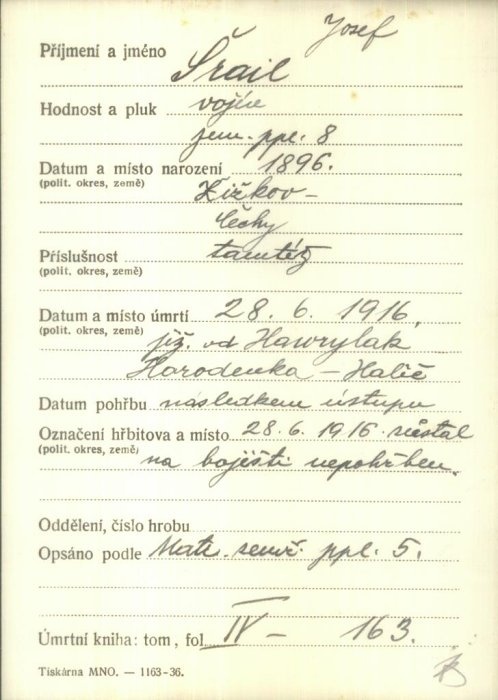 Josef
Příjmení a jméno Šrail
Hodnost a pluk vojín
zem. ppl. 8
Datum a místo narození 1896.
(polit. okres, země) Žižkov –
Čechy
Příslušnost tamtéž
(polit. okres, země)
Datum a místo úmrtí 28. 6. 1916,
(polit. okres, země) již. od Hawrylak
Horodenka – Halič
Datum pohřbu následkem ústupu
Označení hřbitova a místo 28. 6. 1916 zůstal
(polit. okres, země) na bojišti nepohřben.
Oddělení, číslo hrobu
Opsáno podle Mat. ppl. 5.
Úmrtní kniha: tom, fol. IV – 163.
Tiskárna MNO. — 1163-36.